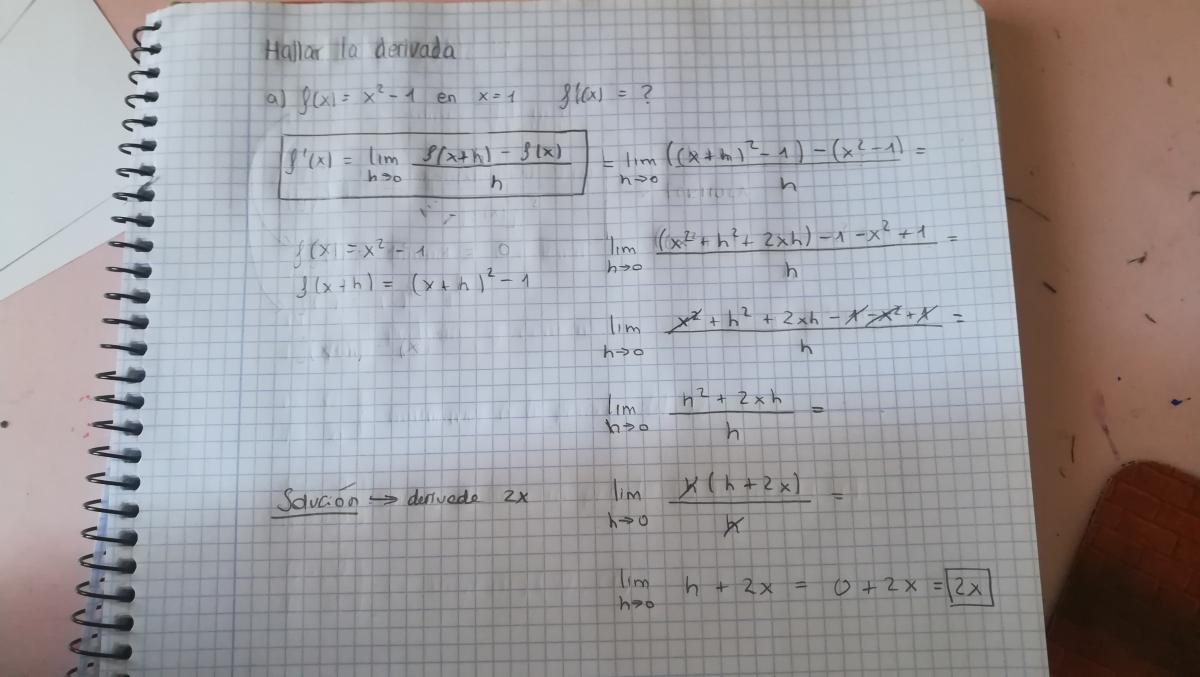 Hallar la derivada
a) f(x) = x² - 1 en x = 1 f'(x) = ?
f'(x) = lim h→0 f(x+h) - f(x) / h = lim h→0 ((x+h)² - 1) - (x² - 1) / h =
f(x) = x² - 1 0
f(x+h) = (x+h)² - 1
lim h→0 (x² + h² + 2xh) - 1 - x² + 1 / h =
lim h→0 x² + h² + 2xh - 1 - x² + 1 / h =
lim h→0 h² + 2xh / h =
Solución → derivada 2x
lim h→0 h (h + 2x) / h =
lim h→0 h + 2x = 0 + 2x = 2x